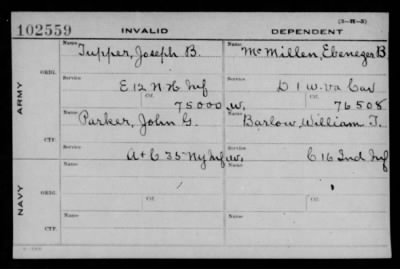 (3-H-3)
102559 INVALID DEPENDENT
Name Name
Tupper, Joseph B. Mc Millen, Ebenezer B
ARMY
ORIG.
Service Service
E 12 N.H. Inf D 1 W. Va Cav
Ctf. Ctf.
75000 W. 76508
Name Name
Parker, John G. Barlow, William T.
CTF.
A+C 35 Ny Inf W. C 16 Ind Inf
NAVY
Name Name
ORIG.
Service Service
Ctf. Ctf.
Name Name
CTF.